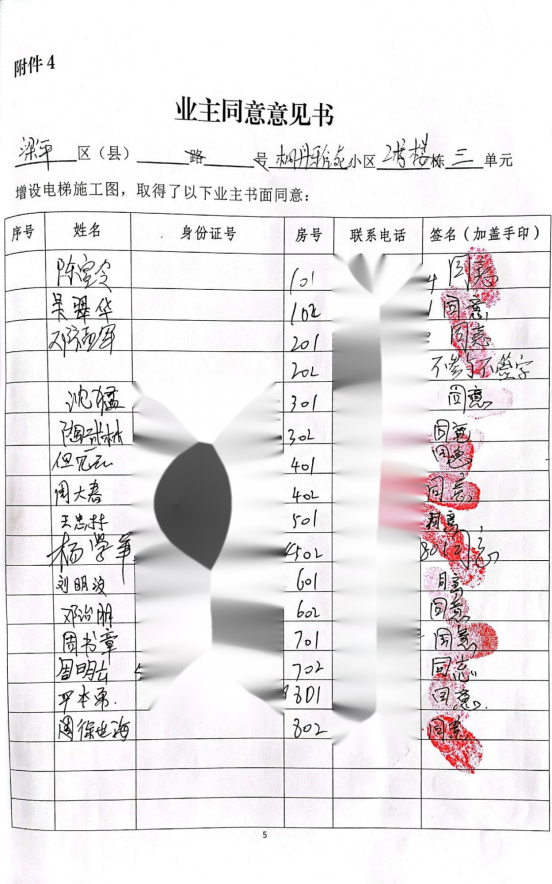 附件4
业主同意意见书
梁平区（县）路号桐丹雅苑小区2号楼栋三单元
增设电梯施工图，取得了以下业主书面同意：
序号 姓名 身份证号 房号 联系电话 签名（加盖手印）
101 同意
吴泽华 102 同意
201 同意
202 不参与不签字
沈猛 301 同意
302 同意
401 同意
周大春 402 同意
王忠林 501 同意
杨学军 502 同意
刘明波 601 同意
邓治明 602 同意
周书章 701 同意
702 同意
801 同意
周徐世海 802 同意
5